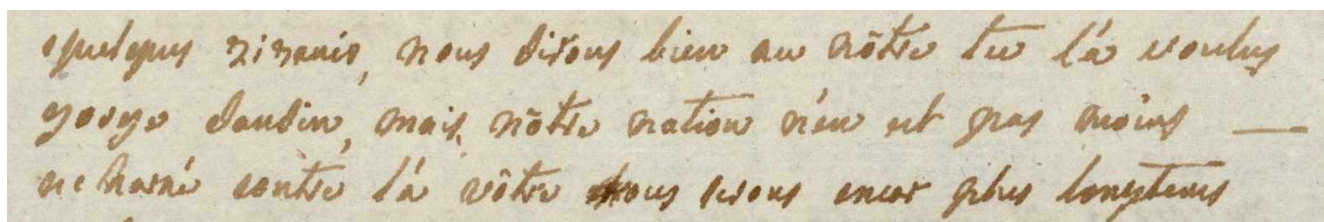 quelques zizanie, nous disons bien au nôtre tu l'a voulus
george dandin, mais nôtre nation n'en est pas moins —
acharné contre la vôtre nous serons encor plus longtems